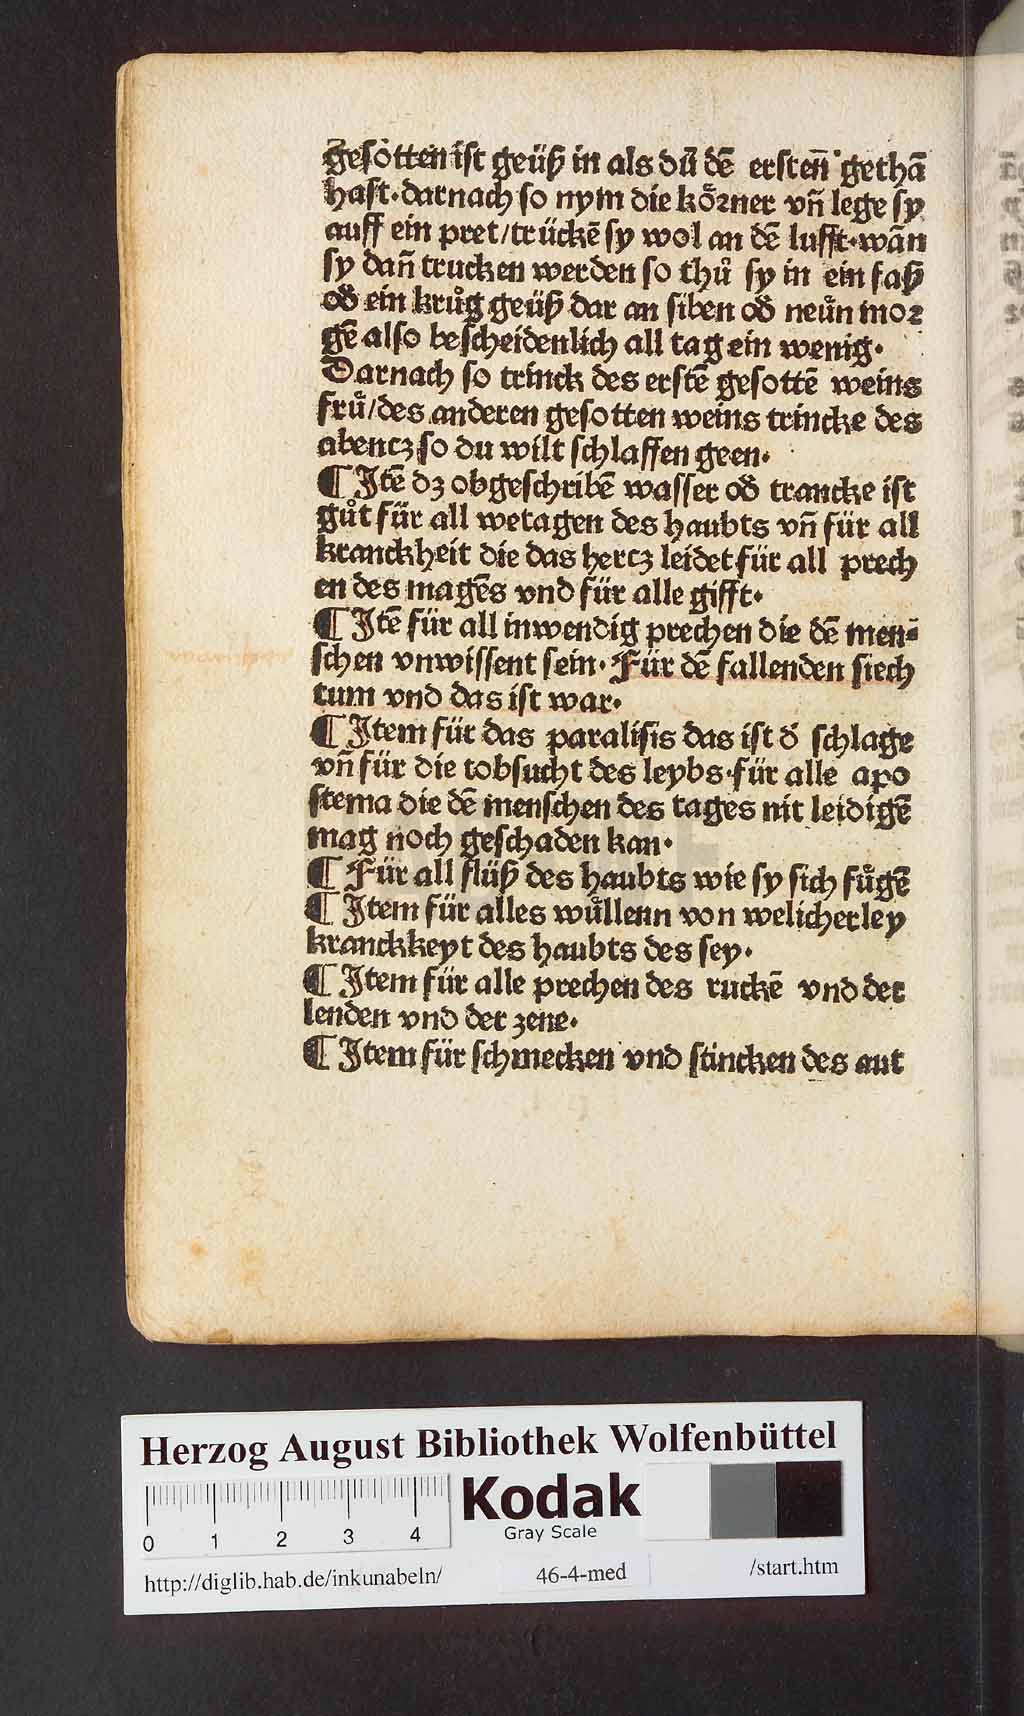 gesotten ist geüß in als dů dē erstenn̄ gethā
hast·darnach so nym die koͤrner vn̄ lege sy
auff ein pret/trückē sy wol an dē lufft·wān
sy dan̄ trucken werden so thů sy in ein faß
od̕ ein krůg geüß dar an siben od̕ neün mor
gē also bescheidenlich all tag ein wenig·
Darnach so trinck des erstē gesottē weins
fruͤ/des anderen gesotten weins trincke des
abentz so du wilt schlaffen geen·
¶ Itē dz obgeschribē wasser od̕ trancke ist
gůt für all wetagen des haubts vn̄ für all
kranckheit die das hertz leidet für all prech
en des magēs vnd für alle gifft·
¶ Itē für all inwendig prechen die dē men⸗
schen vnwissent sein· Für dē fallenden siech
tum vnd das ist war·
¶ Item für das paralisis das ist d̕ schlage
vn̄ für die tobsucht des leybs·für alle apo
stema die dē menschen des tages nit leidigē
mag noch geschaden kan·
¶ Für all flüß des haubts wie sy sich fuͤgē
¶ Item für alles wuͤllenn von welicherley
kranckkeyt des haubts des sey·
¶ Item für alle prechen des ruckē vnd der
lenden vnd der zene·
¶ Item für schmecken vnd stincken des aut
Herzog August Bibliothek Wolfenbüttel
Kodak
Gray Scale
0 1 2 3 4
http://diglib.hab.de/inkunabeln/ 46-4-med /start.htm